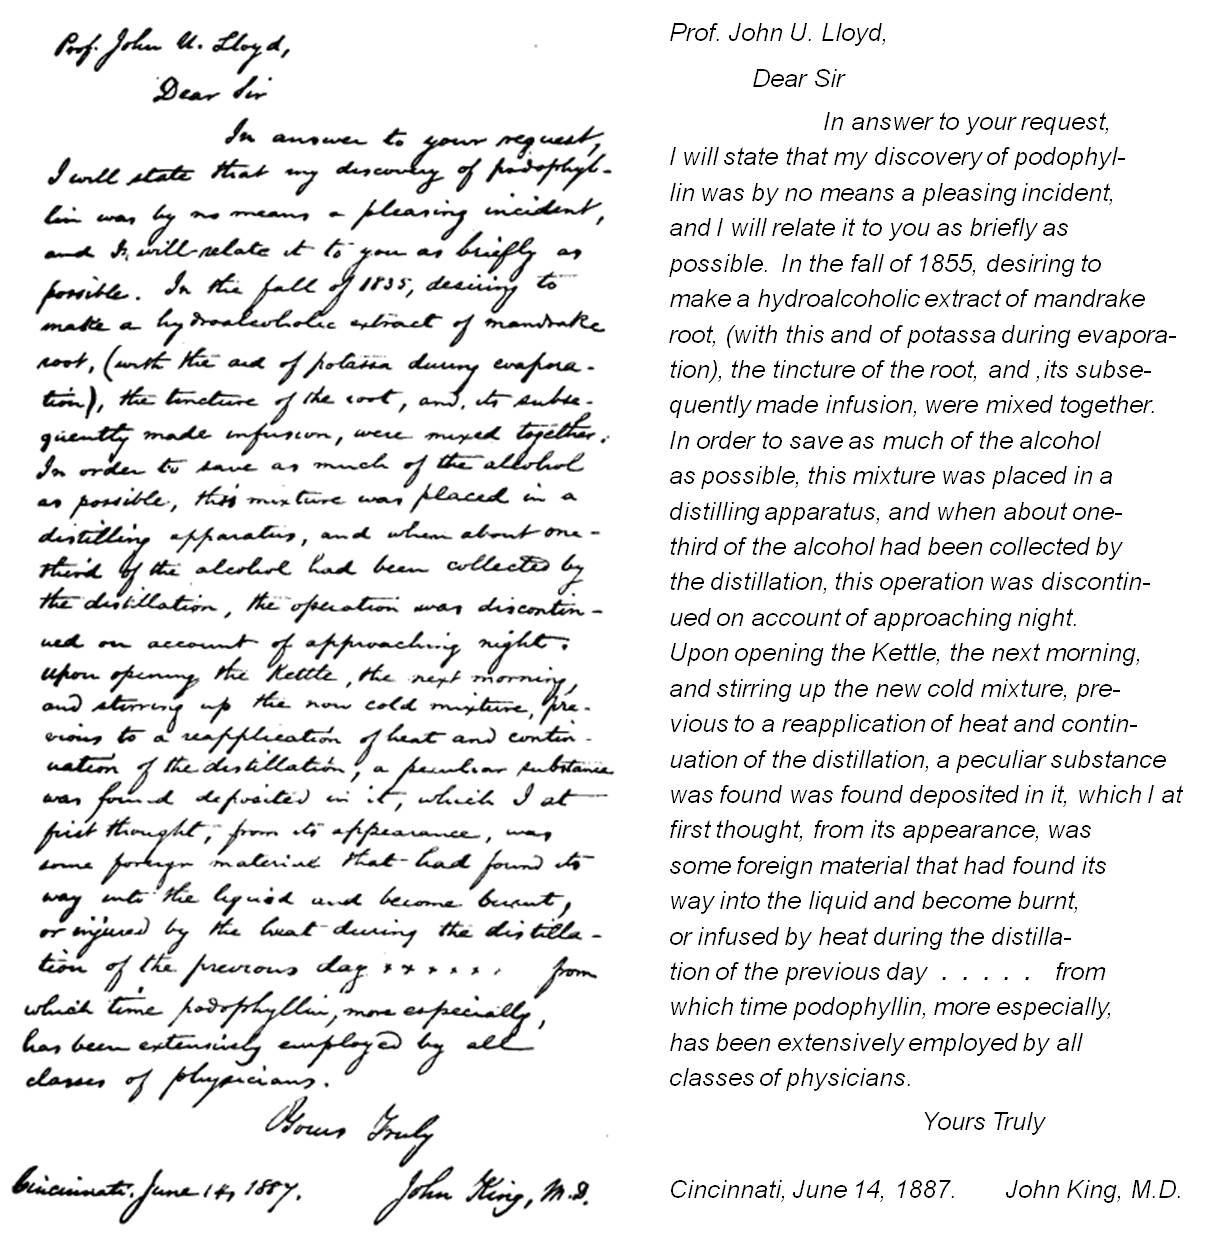 Prof. John U. Lloyd,
Dear Sir
In answer to your request,
I will state that my discovery of podophyl-
lin was by no means a pleasing incident,
and I, will relate it to you as briefly as
possible. In the fall of 1835, desiring to
make a hydroalcoholic extract of mandrake
root, (with the aid of potassa during evapora-
tion), the tincture of the root, and, its subse-
quently made infusion, were mixed together.
In order to save as much of the alcohol
as possible, this mixture was placed in a
distilling apparatus, and when about one-
third of the alcohol had been collected by
the distillation, the operation was discontin-
ued on account of approaching night.
Upon opening the Kettle, the next morning,
and stirring up the now cold mixture, pre-
vious to a reapplication of heat and contin-
uation of the distillation, a peculiar substance
was found deposited in it, which I at
first thought, from its appearance, was
some foreign material that had found its
way into the liquid and become burnt,
or injured by the heat during the distilla-
tion of the previous day x x x x x . from
which time podophyllin, more especially,
has been extensively employed by all
classes of physicians.
Yours Truly
Cincinnati, June 14, 1887. John King, M.D.
Prof. John U. Lloyd,
Dear Sir
In answer to your request,
I will state that my discovery of podophyl-
lin was by no means a pleasing incident,
and I will relate it to you as briefly as
possible. In the fall of 1855, desiring to
make a hydroalcoholic extract of mandrake
root, (with this and of potassa during evapora-
tion), the tincture of the root, and ,its subse-
quently made infusion, were mixed together.
In order to save as much of the alcohol
as possible, this mixture was placed in a
distilling apparatus, and when about one-
third of the alcohol had been collected by
the distillation, this operation was discontin-
ued on account of approaching night.
Upon opening the Kettle, the next morning,
and stirring up the new cold mixture, pre-
vious to a reapplication of heat and contin-
uation of the distillation, a peculiar substance
was found was found deposited in it, which I at
first thought, from its appearance, was
some foreign material that had found its
way into the liquid and become burnt,
or infused by heat during the distilla-
tion of the previous day . . . . . from
which time podophyllin, more especially,
has been extensively employed by all
classes of physicians.
Yours Truly
Cincinnati, June 14, 1887. John King, M.D.